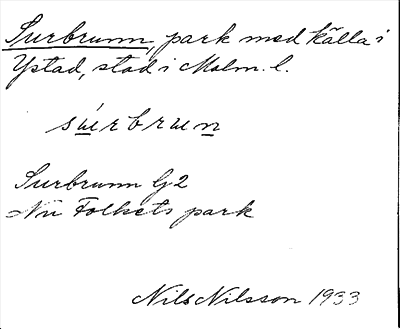 Surbrunn, park med källa i
Ystad, stad i Malm. l.
su̲rbrun̲
Surbrunn G2
Nu Folkets park
Nils Nilsson 1933